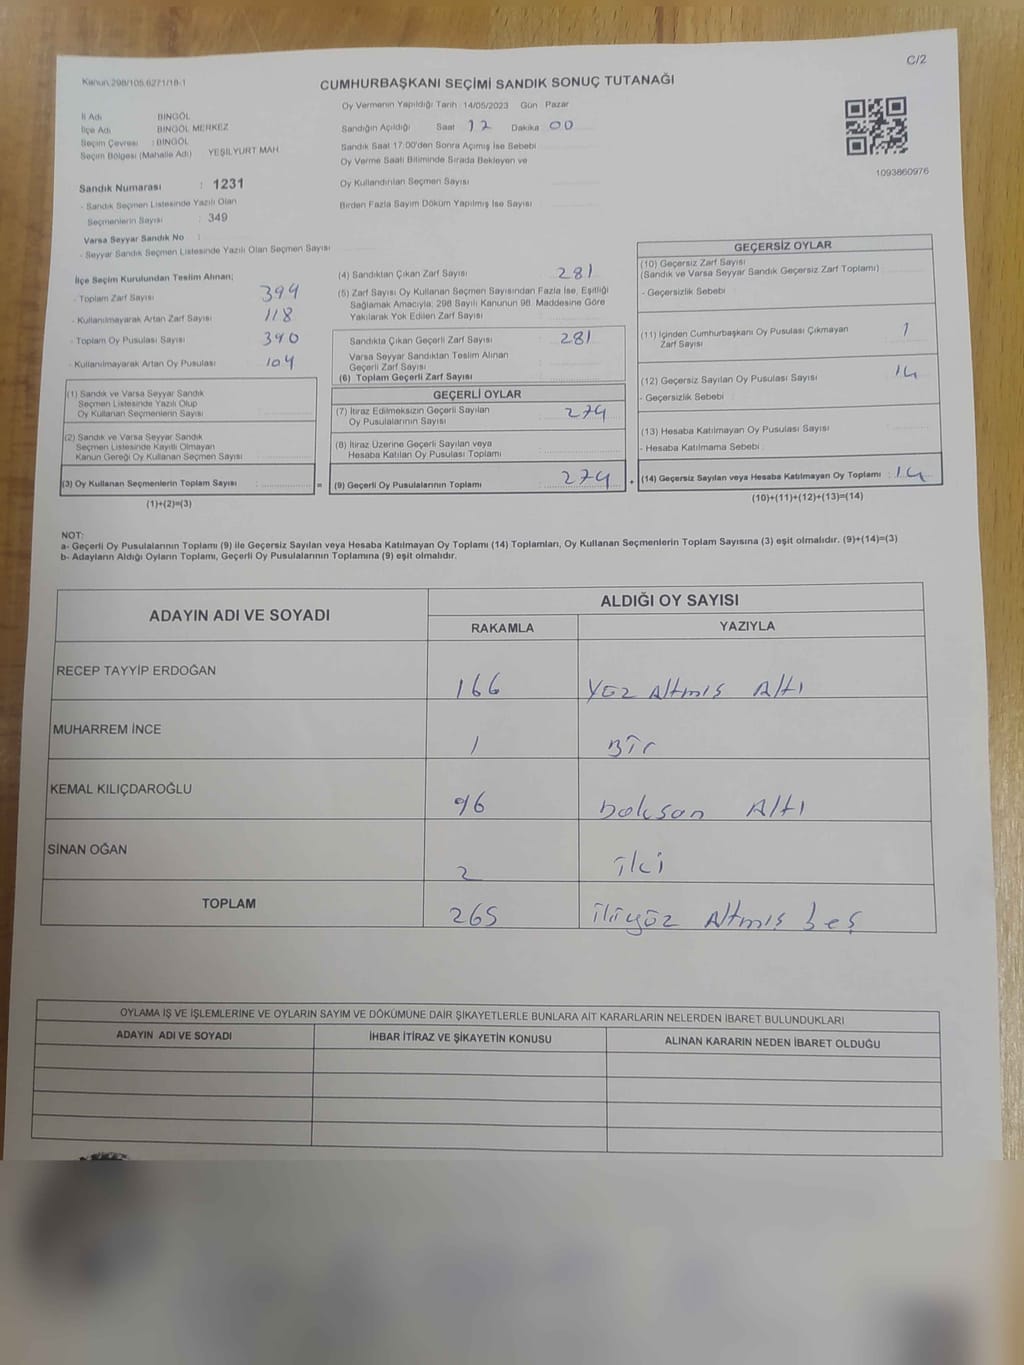 C/2
Kanun 298/105.6271/18-1
CUMHURBAŞKANI SEÇİMİ SANDIK SONUÇ TUTANAĞI
İl Adı BİNGÖL
İlçe Adı BİNGÖL MERKEZ
Seçim Çevresi : BİNGÖL
Seçim Bölgesi (Mahalle Adı) YEŞİLYURT MAH
Sandık Numarası : 1231
- Sandık Seçmen Listesinde Yazılı Olan
Seçmenlerin Sayısı : 349
Varsa Seyyar Sandık No :
- Seyyar Sandık Seçmen Listesinde Yazılı Olan Seçmen Sayısı
Oy Vermenin Yapıldığı Tarih : 14/05/2023 Gün : Pazar
Sandığın Açıldığı Saat 17 Dakika 00
Sandık Saat 17:00'den Sonra Açımış İse Sebebi
Oy Verme Saati Bitiminde Sırada Bekleyen ve
Oy Kullandırılan Seçmen Sayısı
Birden Fazla Sayım Döküm Yapılmış İse Sayısı
1093860976
İlçe Seçim Kurulundan Teslim Alınan;
- Toplam Zarf Sayısı 399
- Kullanılmayarak Artan Zarf Sayısı 118
- Toplam Oy Pusulası Sayısı 390
- Kullanılmayarak Artan Oy Pusulası 109
(1) Sandık ve Varsa Seyyar Sandık
Seçmen Listesinde Yazılı Olup
Oy Kullanan Seçmenlerin Sayısı
(2) Sandık ve Varsa Seyyar Sandık
Seçmen Listesinde Kayıtlı Olmayan
Kanun Gereği Oy Kullanan Seçmen Sayısı
(3) Oy Kullanan Seçmenlerin Toplam Sayısı : =
(1)+(2)=(3)
(4) Sandıktan Çıkan Zarf Sayısı 281
(5) Zarf Sayısı Oy Kullanan Seçmen Sayısından Fazla İse, Eşitliği
Sağlamak Amacıyla; 298 Sayılı Kanunun 98. Maddesine Göre
Yakılarak Yok Edilen Zarf Sayısı
Sandıkta Çıkan Geçerli Zarf Sayısı 281
Varsa Seyyar Sandıktan Teslim Alınan
Geçerli Zarf Sayısı
(6) Toplam Geçerli Zarf Sayısı
GEÇERLİ OYLAR
(7) İtiraz Edilmeksizin Geçerli Sayılan
Oy Pusulalarının Sayısı 274
(8) İtiraz Üzerine Geçerli Sayılan veya
Hesaba Katılan Oy Pusulası Toplamı
(9) Geçerli Oy Pusulalarının Toplamı 274 +
GEÇERSİZ OYLAR
(10) Geçersiz Zarf Sayısı
(Sandık ve Varsa Seyyar Sandık Geçersiz Zarf Toplamı)
- Geçersizlik Sebebi
(11) İçinden Cumhurbaşkanı Oy Pusulası Çıkmayan
Zarf Sayısı 1
(12) Geçersiz Sayılan Oy Pusulası Sayısı 14
- Geçersizlik Sebebi
(13) Hesaba Katılmayan Oy Pusulası Sayısı
- Hesaba Katılmama Sebebi
(14) Geçersiz Sayılan veya Hesaba Katılmayan Oy Toplamı : 14
(10)+(11)+(12)+(13)=(14)
NOT:
a- Geçerli Oy Pusulalarının Toplamı (9) ile Geçersiz Sayılan veya Hesaba Katılmayan Oy Toplamı (14) Toplamları, Oy Kullanan Seçmenlerin Toplam Sayısına (3) eşit olmalıdır. (9)+(14)=(3)
b- Adayların Aldığı Oyların Toplamı, Geçerli Oy Pusulalarının Toplamına (9) eşit olmalıdır.
ADAYIN ADI VE SOYADI ALDIĞI OY SAYISI
RAKAMLA YAZIYLA
RECEP TAYYİP ERDOĞAN 166 Yüz Altmış Altı
MUHARREM İNCE 1 Bir
KEMAL KILIÇDAROĞLU 96 Doksan Altı
SİNAN OĞAN 2 iki
TOPLAM 265 ikiyüz Altmış beş
OYLAMA İŞ VE İŞLEMLERİNE VE OYLARIN SAYIM VE DÖKÜMÜNE DAİR ŞİKAYETLERLE BUNLARA AİT KARARLARIN NELERDEN İBARET BULUNDUKLARI
ADAYIN ADI VE SOYADI İHBAR İTİRAZ VE ŞİKAYETİN KONUSU ALINAN KARARIN NEDEN İBARET OLDUĞU